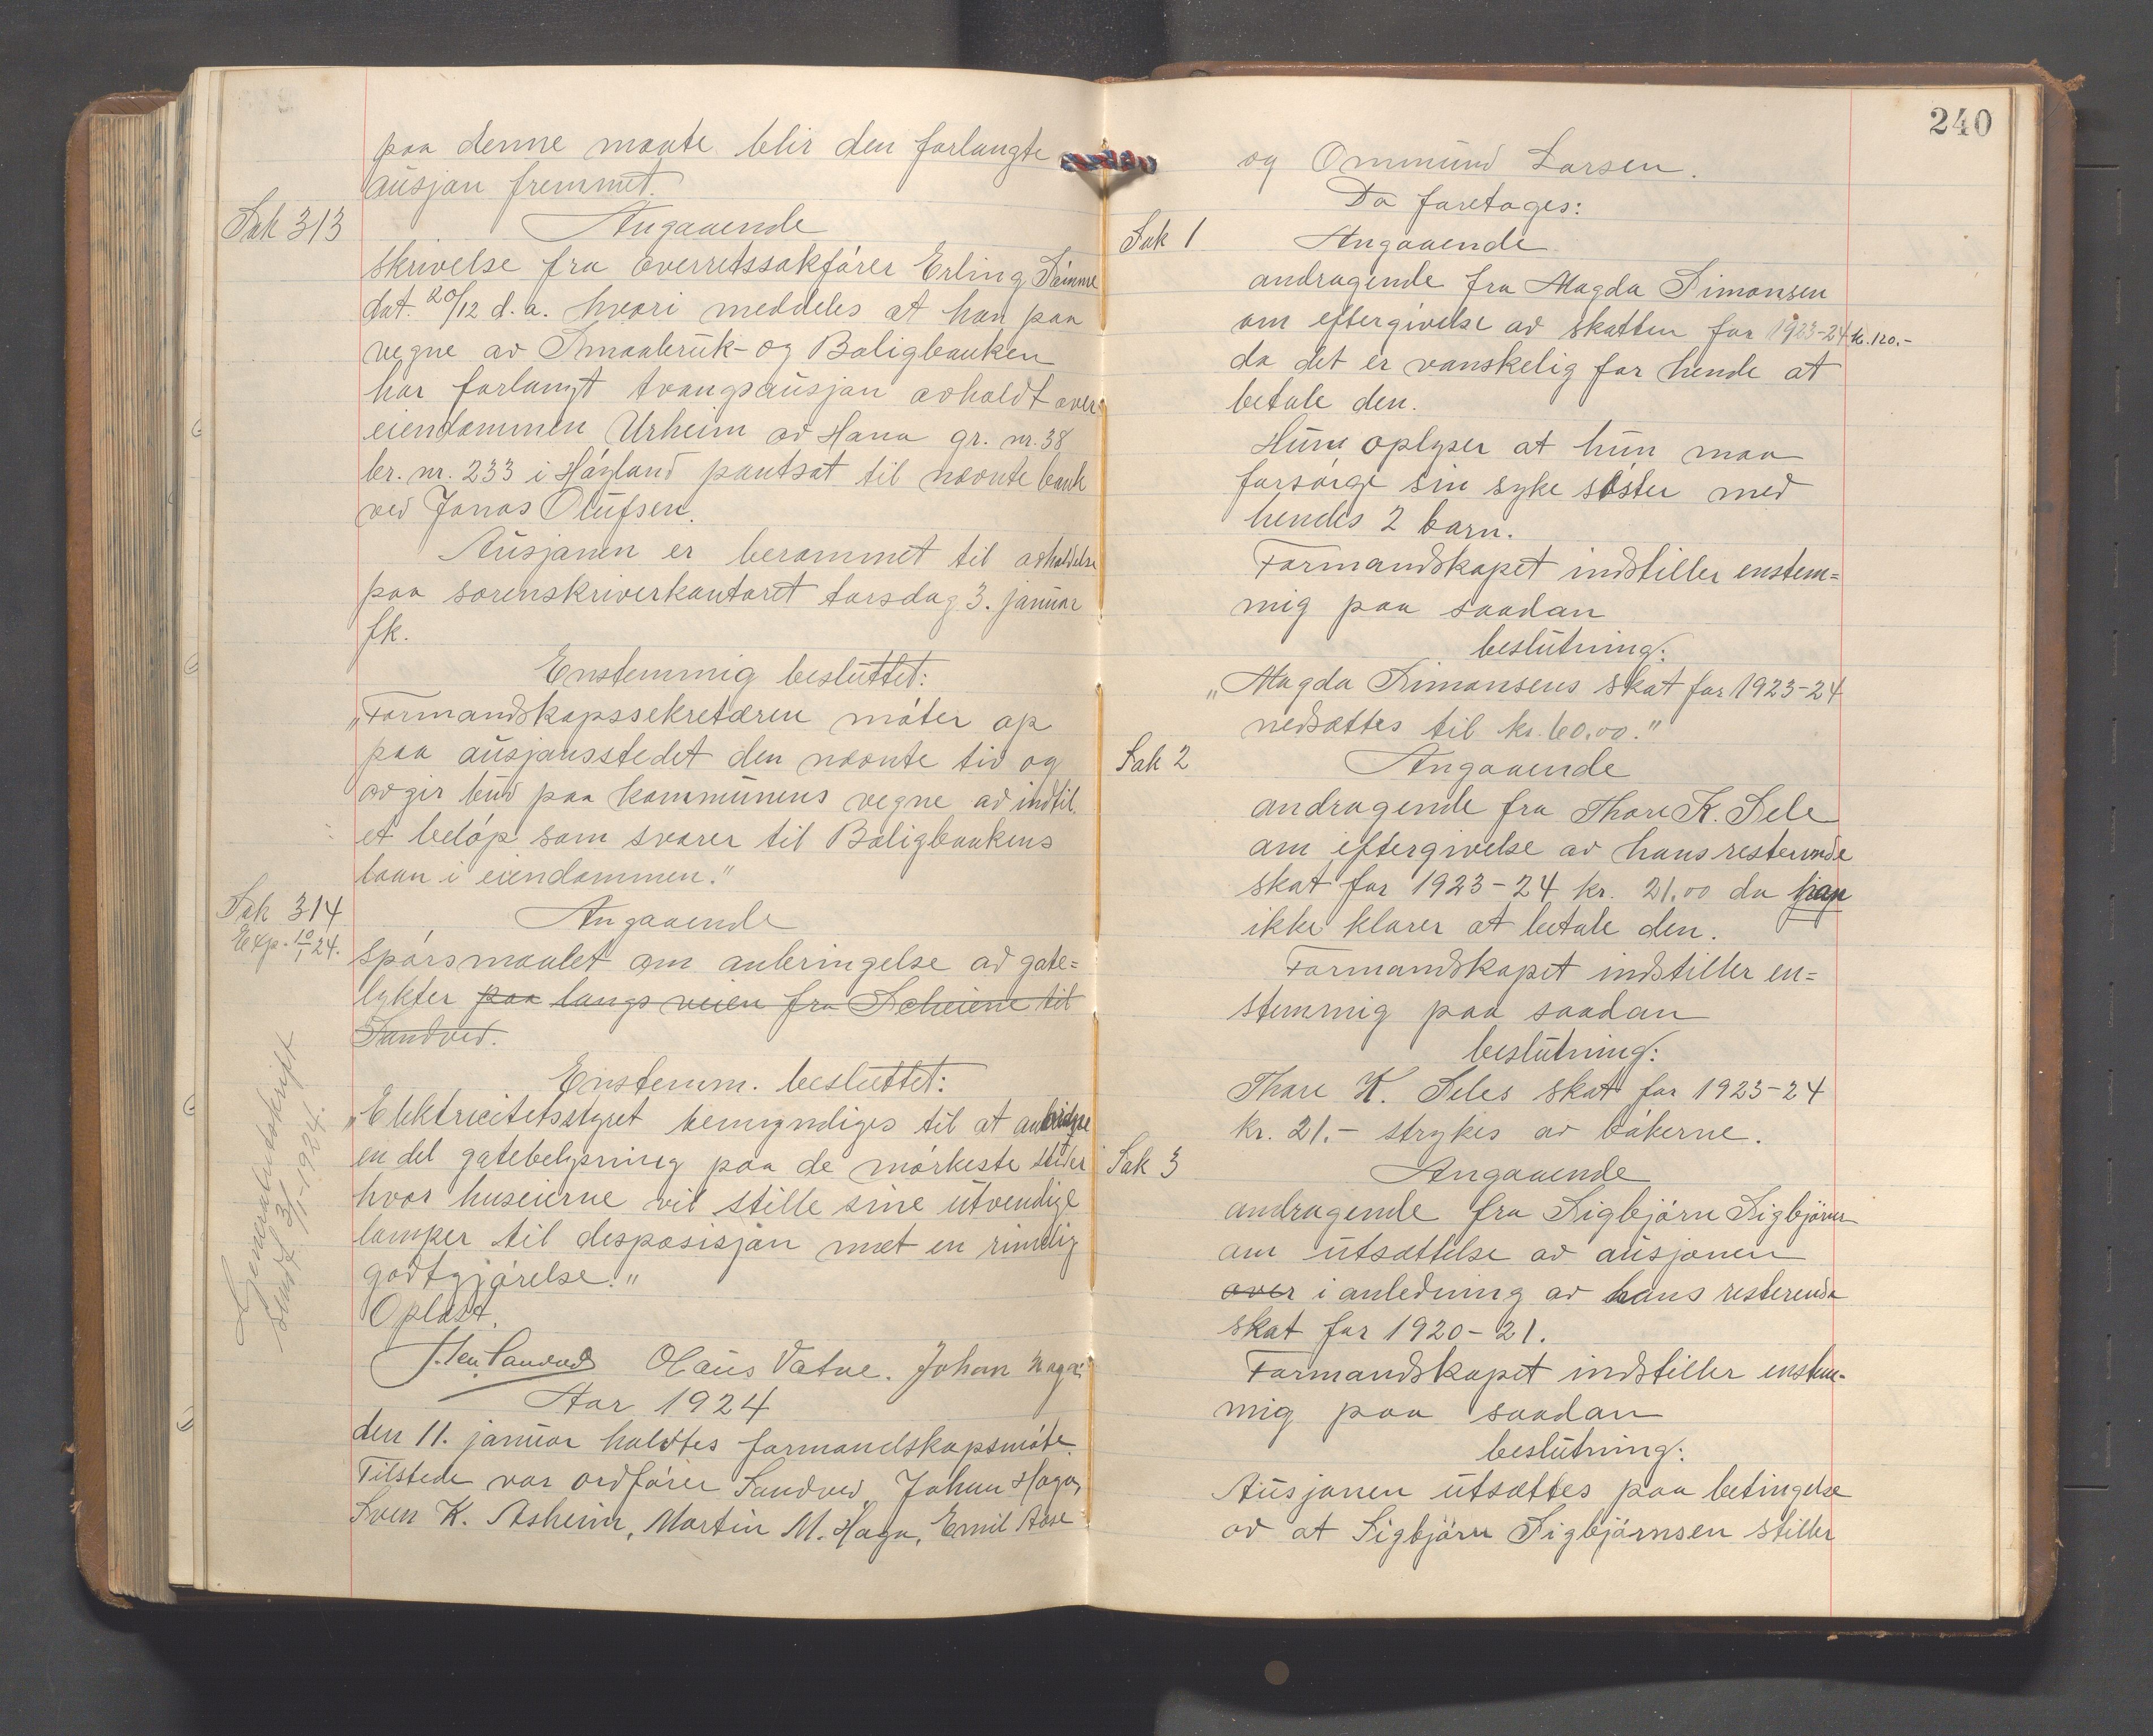 paa denne maate blir den forlangte
ausjon fremmet.
Sak 313
Angaaende
skrivelse fra overretssakfører Erling Sømme
dat. 20/12 d.a. hvori meddeles at han paa
vegne av Smaabruk- og Boligbanken
har forlangt tvangsausjon avholdt over
eiendommen Urheim av Hana gr. nr. 38
br. nr. 233 i Høyland pantsat til nævnte bank
ved Jonas Olufsen.
Ausjonen er berammet til avholdelse
paa sorenskriverkontoret torsdag 3. januar
fk.
Enstemmig besluttet:
„Formandskapssekretæren møter op
paa ausjonsstedet den nævnte tid og
avgir bud paa kommunens vegne av indtil
et beløp som svarer til Boligbankens
laan i eiendommen."
Sak 314
Exp. 10/1 24.
Angaaende
spørsmaalet om anbringelse av gate=
lykter paa langs veien fra Scheiene til
Sandved.
Enstemm. besluttet:
„Elektricitetsstyret bemyndiges til at anbringe
en del gatebelysning paa de mørkeste steder
hvor huseierne vil stille sine utvendige
lamper til desposisjon mot en rimelig
godtgjørelse."
Oplæst.
Generalutskrift
sendt 31/1-1924.
Sandved Olaus Vatne. Johan Haga
Aar 1924
den 11. januar holdtes formandskapsmøte.
Tilstede var ordfører Sandved, Johan Haga,
Sven K. Asheim, Martin M. Haga, Emil Aase
240
og Ommund Larsen.
Da foretages:
Sak 1
Angaaende
andragende fra Magda Simonsen
om eftergivelse av skatten for 1923-24 kr. 120.-
da det er vanskelig for hende at
betale den.
Hun oplyser at hun maa
forsørge sin syke søster med
hendes 2 barn.
Formandskapet indstiller enstem=
mig paa saadan
beslutning:
„Magda Simonsens skat for 1923-24
nedsættes til kr. 60.00."
Sak 2
Angaaende
andragende fra Thore K. Sele
om eftergivelse av hans resterende
skat for 1923-24 kr. 21.00 da han
ikke klarer at betale den.
Formandskapet indstiller en=
stemmig paa saadan
beslutning:
Thore K. Seles skat for 1923-24
kr. 21.- strykes av bøkerne.
Sak 3
Angaaende
andragende fra Sigbjørn Sigbjørnsen
om utsættelse av ausjonen
over i anledning av hans resterende
skat for 1920-21.
Formandskapet indstiller enstem-
mig paa saadan
beslutning:
Ausjonen utsættes paa betingelse
av at Sigbjørn Sigbjørnsen stiller